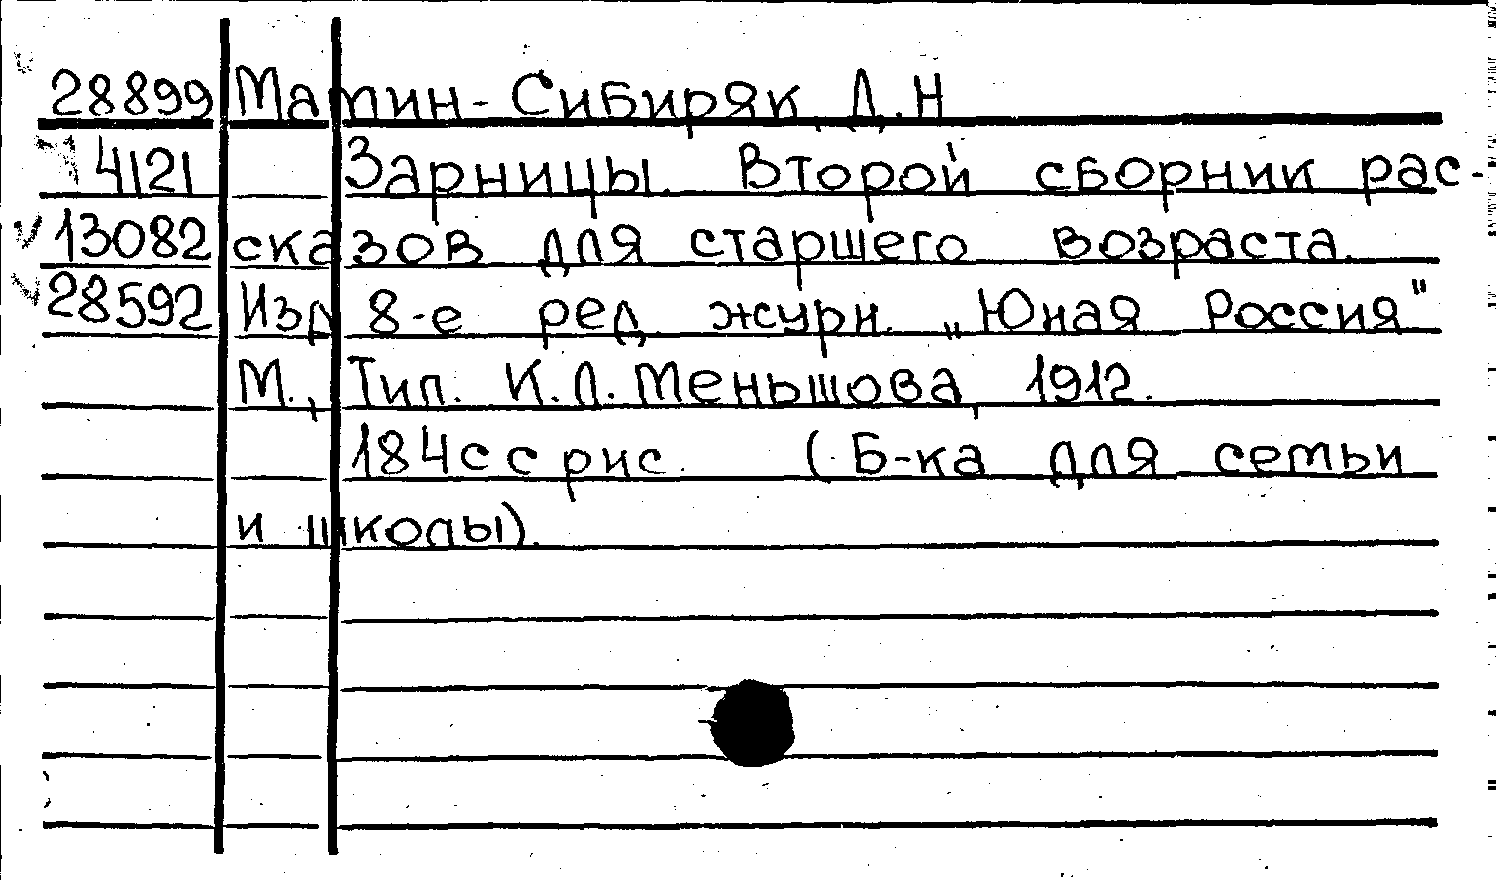 28899 Мамин-Сибиряк, Д.Н
4121 Зарницы. Второй сборник рас-
13082 сказов для старшего возраста.
28592 Изд 8-е ред. журн. „Юная Россия"
М., Тип. К.Л. Меньшова, 1912.
184с с рис. (Б-ка для семьи
и школы).